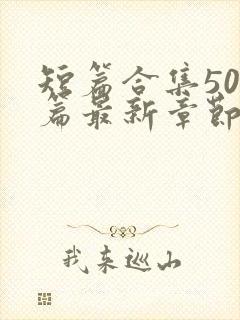 短篇合集50
篇最新章节
我来巡山